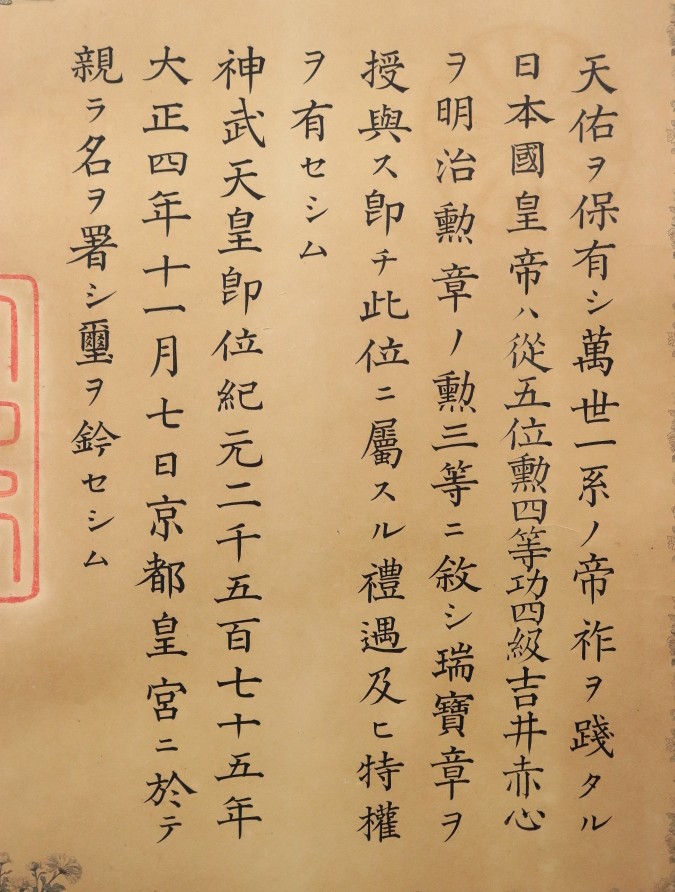 天佑ヲ保有シ萬世一系ノ帝祚ヲ踐タル
日本國皇帝ハ從五位勲四等功四級吉井赤心
ヲ明治勲章ノ勲三等ニ敘シ瑞寶章ヲ
授與ス卽チ此位ニ屬スル禮遇及ヒ特權
ヲ有セシム
神武天皇卽位紀元二千五百七十五年
大正四年十一月七日京都皇宮ニ於テ
親ラ名ヲ署シ璽ヲ鈐セシム